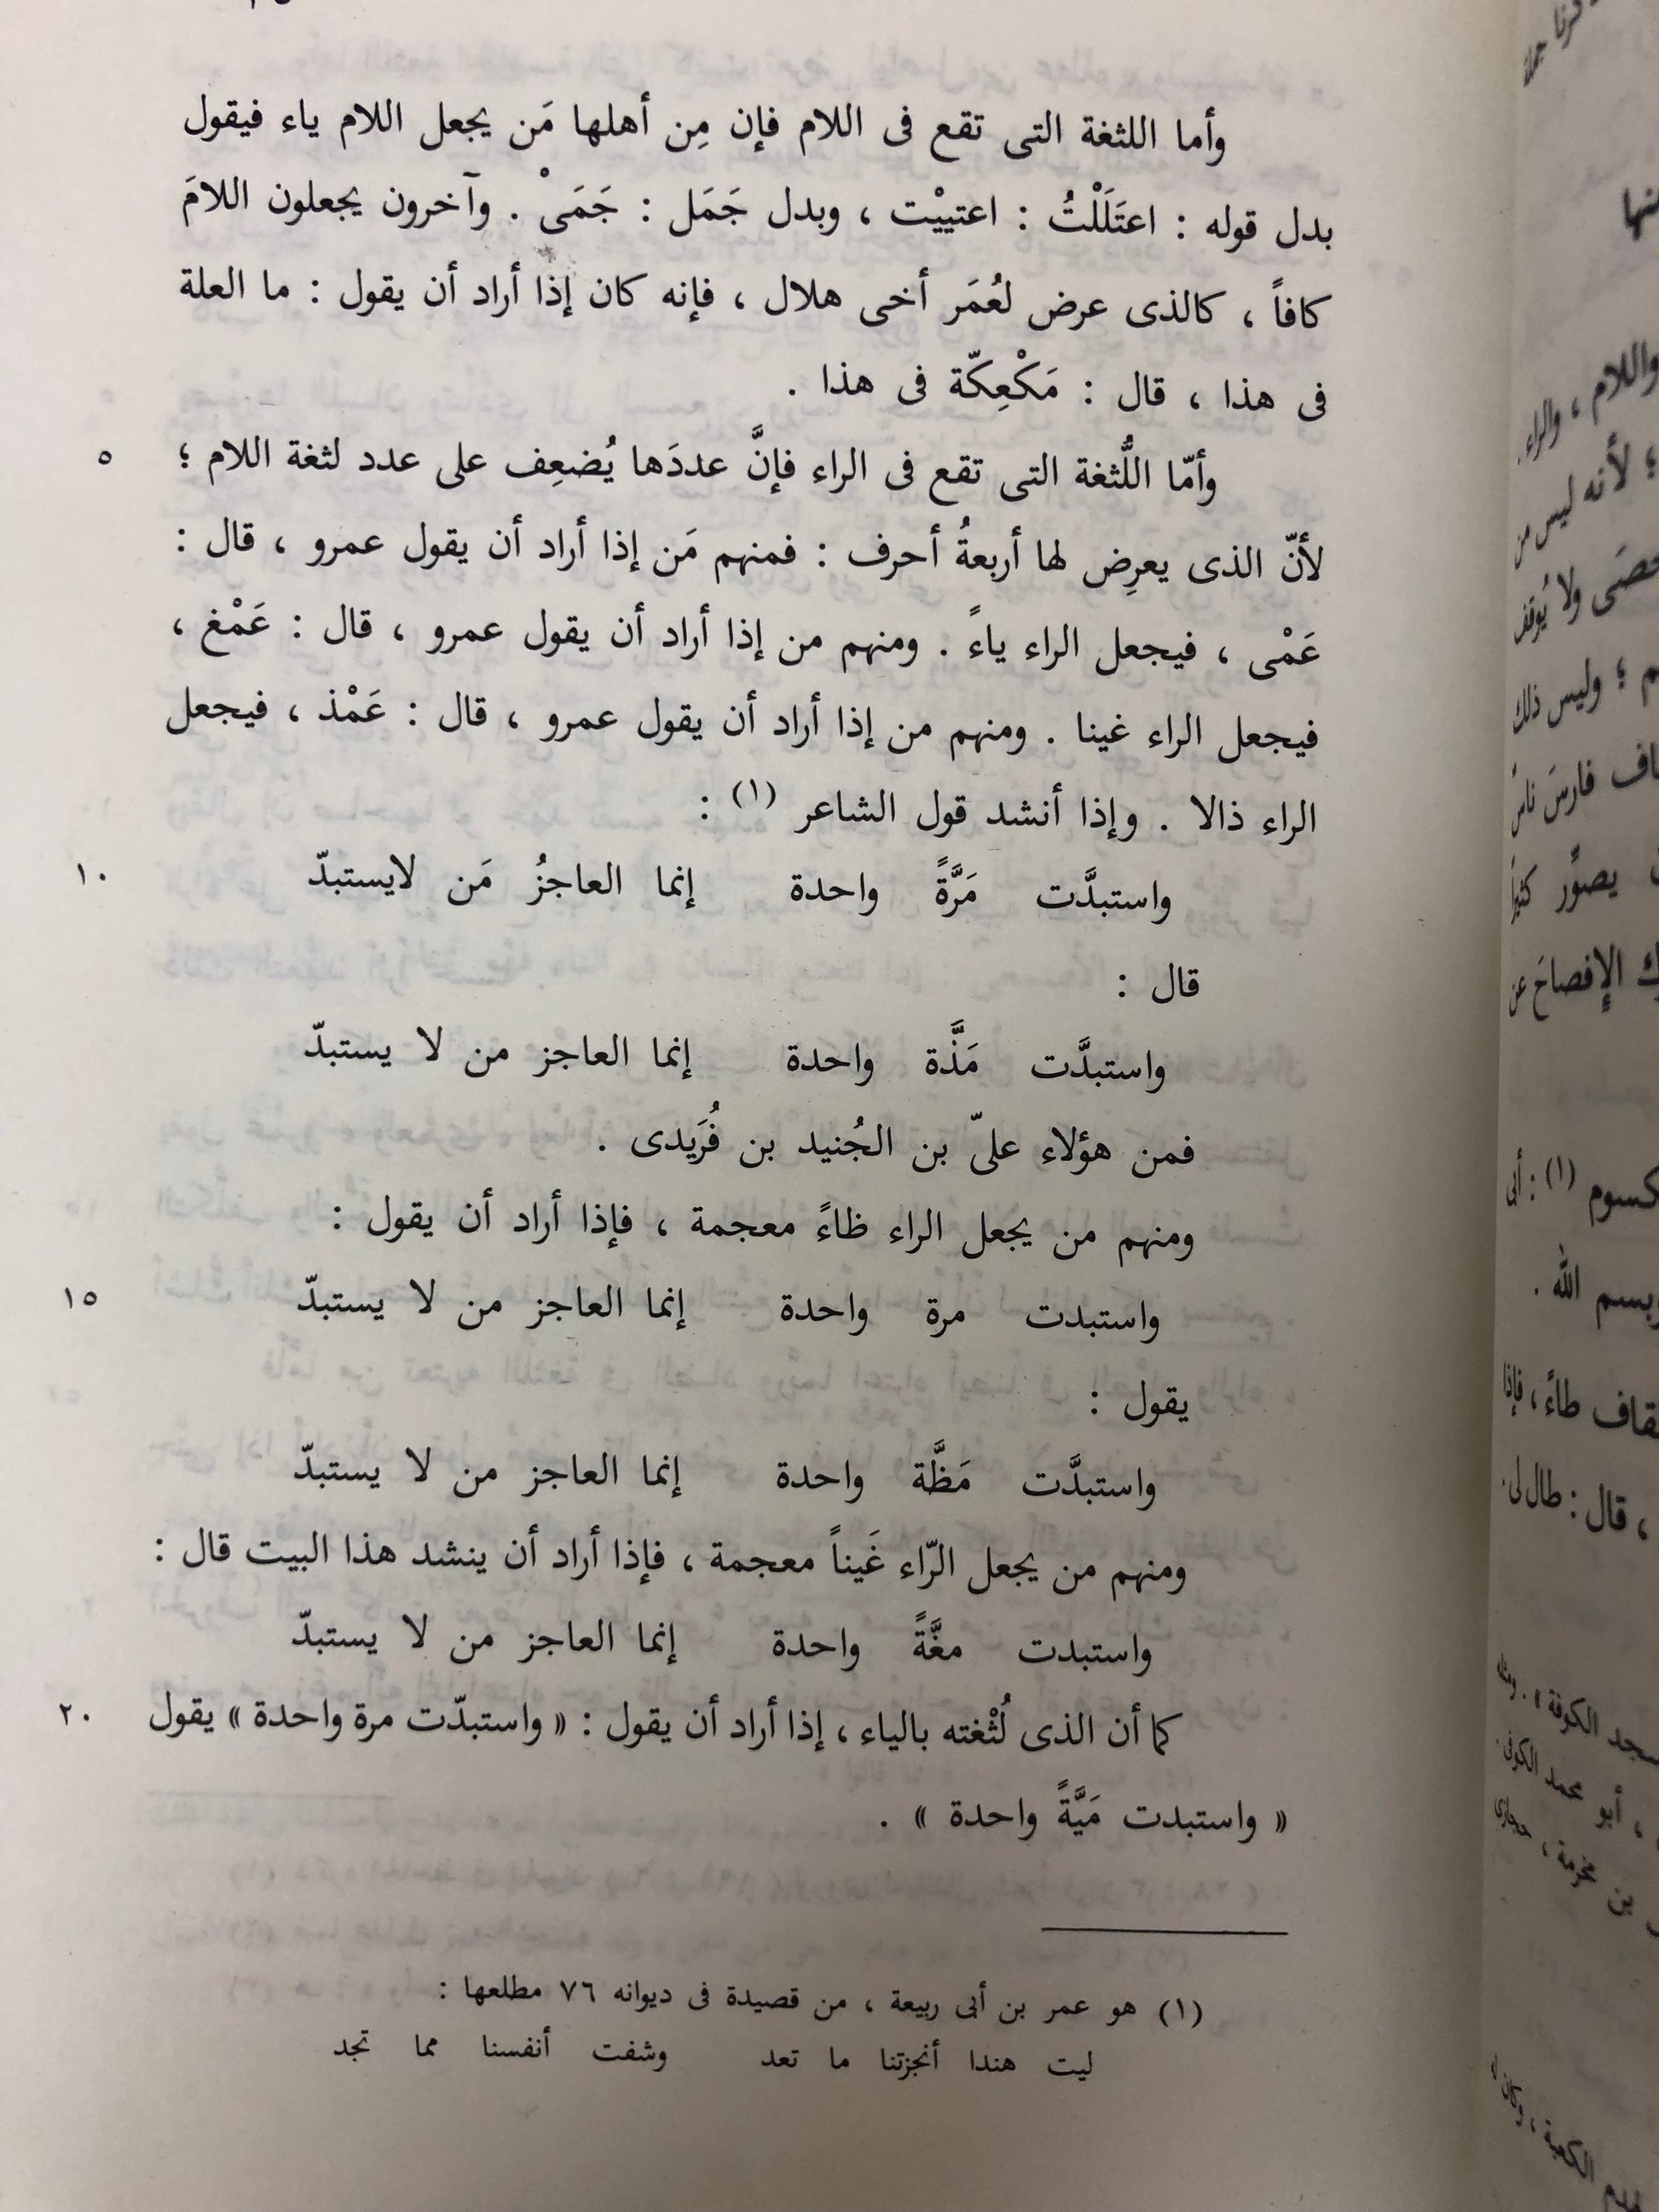 وأما اللثغة التى تقع فى اللام فإن مِن أهلها مَن يجعل اللام ياء فيقول
بدل قوله : اعتَلَلْتُ : اعتييْت ، وبدل جَمَل : جَمَىْ . وآخرون يجعلون اللامَ
كافاً ، كالذى عرض لعُمَر أخى هلال ، فإنه كان إذا أراد أن يقول : ما العلة
فى هذا ، قال : مَكْعِكّة فى هذا .
وأمّا اللُّثغة التى تقع فى الراء فإنَّ عددَها يُضعِف على عدد لثغة اللام ؛ ٥
لأنّ الذى يعرِض لها أربعةُ أحرف : فمنهم مَن إذا أراد أن يقول عمرو ، قال :
عَمْى ، فيجعل الراء ياءً . ومنهم من إذا أراد أن يقول عمرو ، قال : عَمْغ ،
فيجعل الراء غينا . ومنهم من إذا أراد أن يقول عمرو ، قال : عَمْذ ، فيجعل
الراء ذالا . وإذا أنشد قول الشاعر (١) :
واستبدَّت مَرَّةً واحدة إنما العاجزُ مَن لايستبدّ ١٠
قال :
واستبدَّت مَذَّة واحدة إنما العاجز من لا يستبدّ
فمن هؤلاء علىّ بن الجُنيد بن فُرَيدى .
ومنهم من يجعل الراء ظاءً معجمة ، فإذا أراد أن يقول :
واستبدت مرة واحدة إنما العاجز من لا يستبدّ ١٥
يقول :
واستبدَّت مَظَّة واحدة إنما العاجز من لا يستبدّ
ومنهم من يجعل الرّاء غَيناً معجمة ، فإذا أراد أن ينشد هذا البيت قال :
واستبدت مغَّةً واحدة إنما العاجز من لا يستبدّ
كما أن الذى لُثْغته بالياء ، إذا أراد أن يقول : « واستبدّت مرة واحدة » يقول ٢٠
« واستبدت مَيَّةً واحدة » .
(١) هو عمر بن أبى ربيعة ، من قصيدة فى ديوانه ٧٦ مطلعها :
ليت هندا أنجزتنا ما تعد وشفت أنفسنا مما تجد
واللام ، والراء .
؛ لأنه ليس من
ولا يُوقف
؛ وليس ذلك
فارسَ ناسٌ
يصوَّر كثيراً
الإفصاحَ عن
(١) : أبى
وبسم الله .
طاءً ، فإذا
، قال : طال لى .
الكوفة » . ومثله
، أبو محمد الكوفى .
بن مخرمة ، حجازى
الكعبة ، وكان